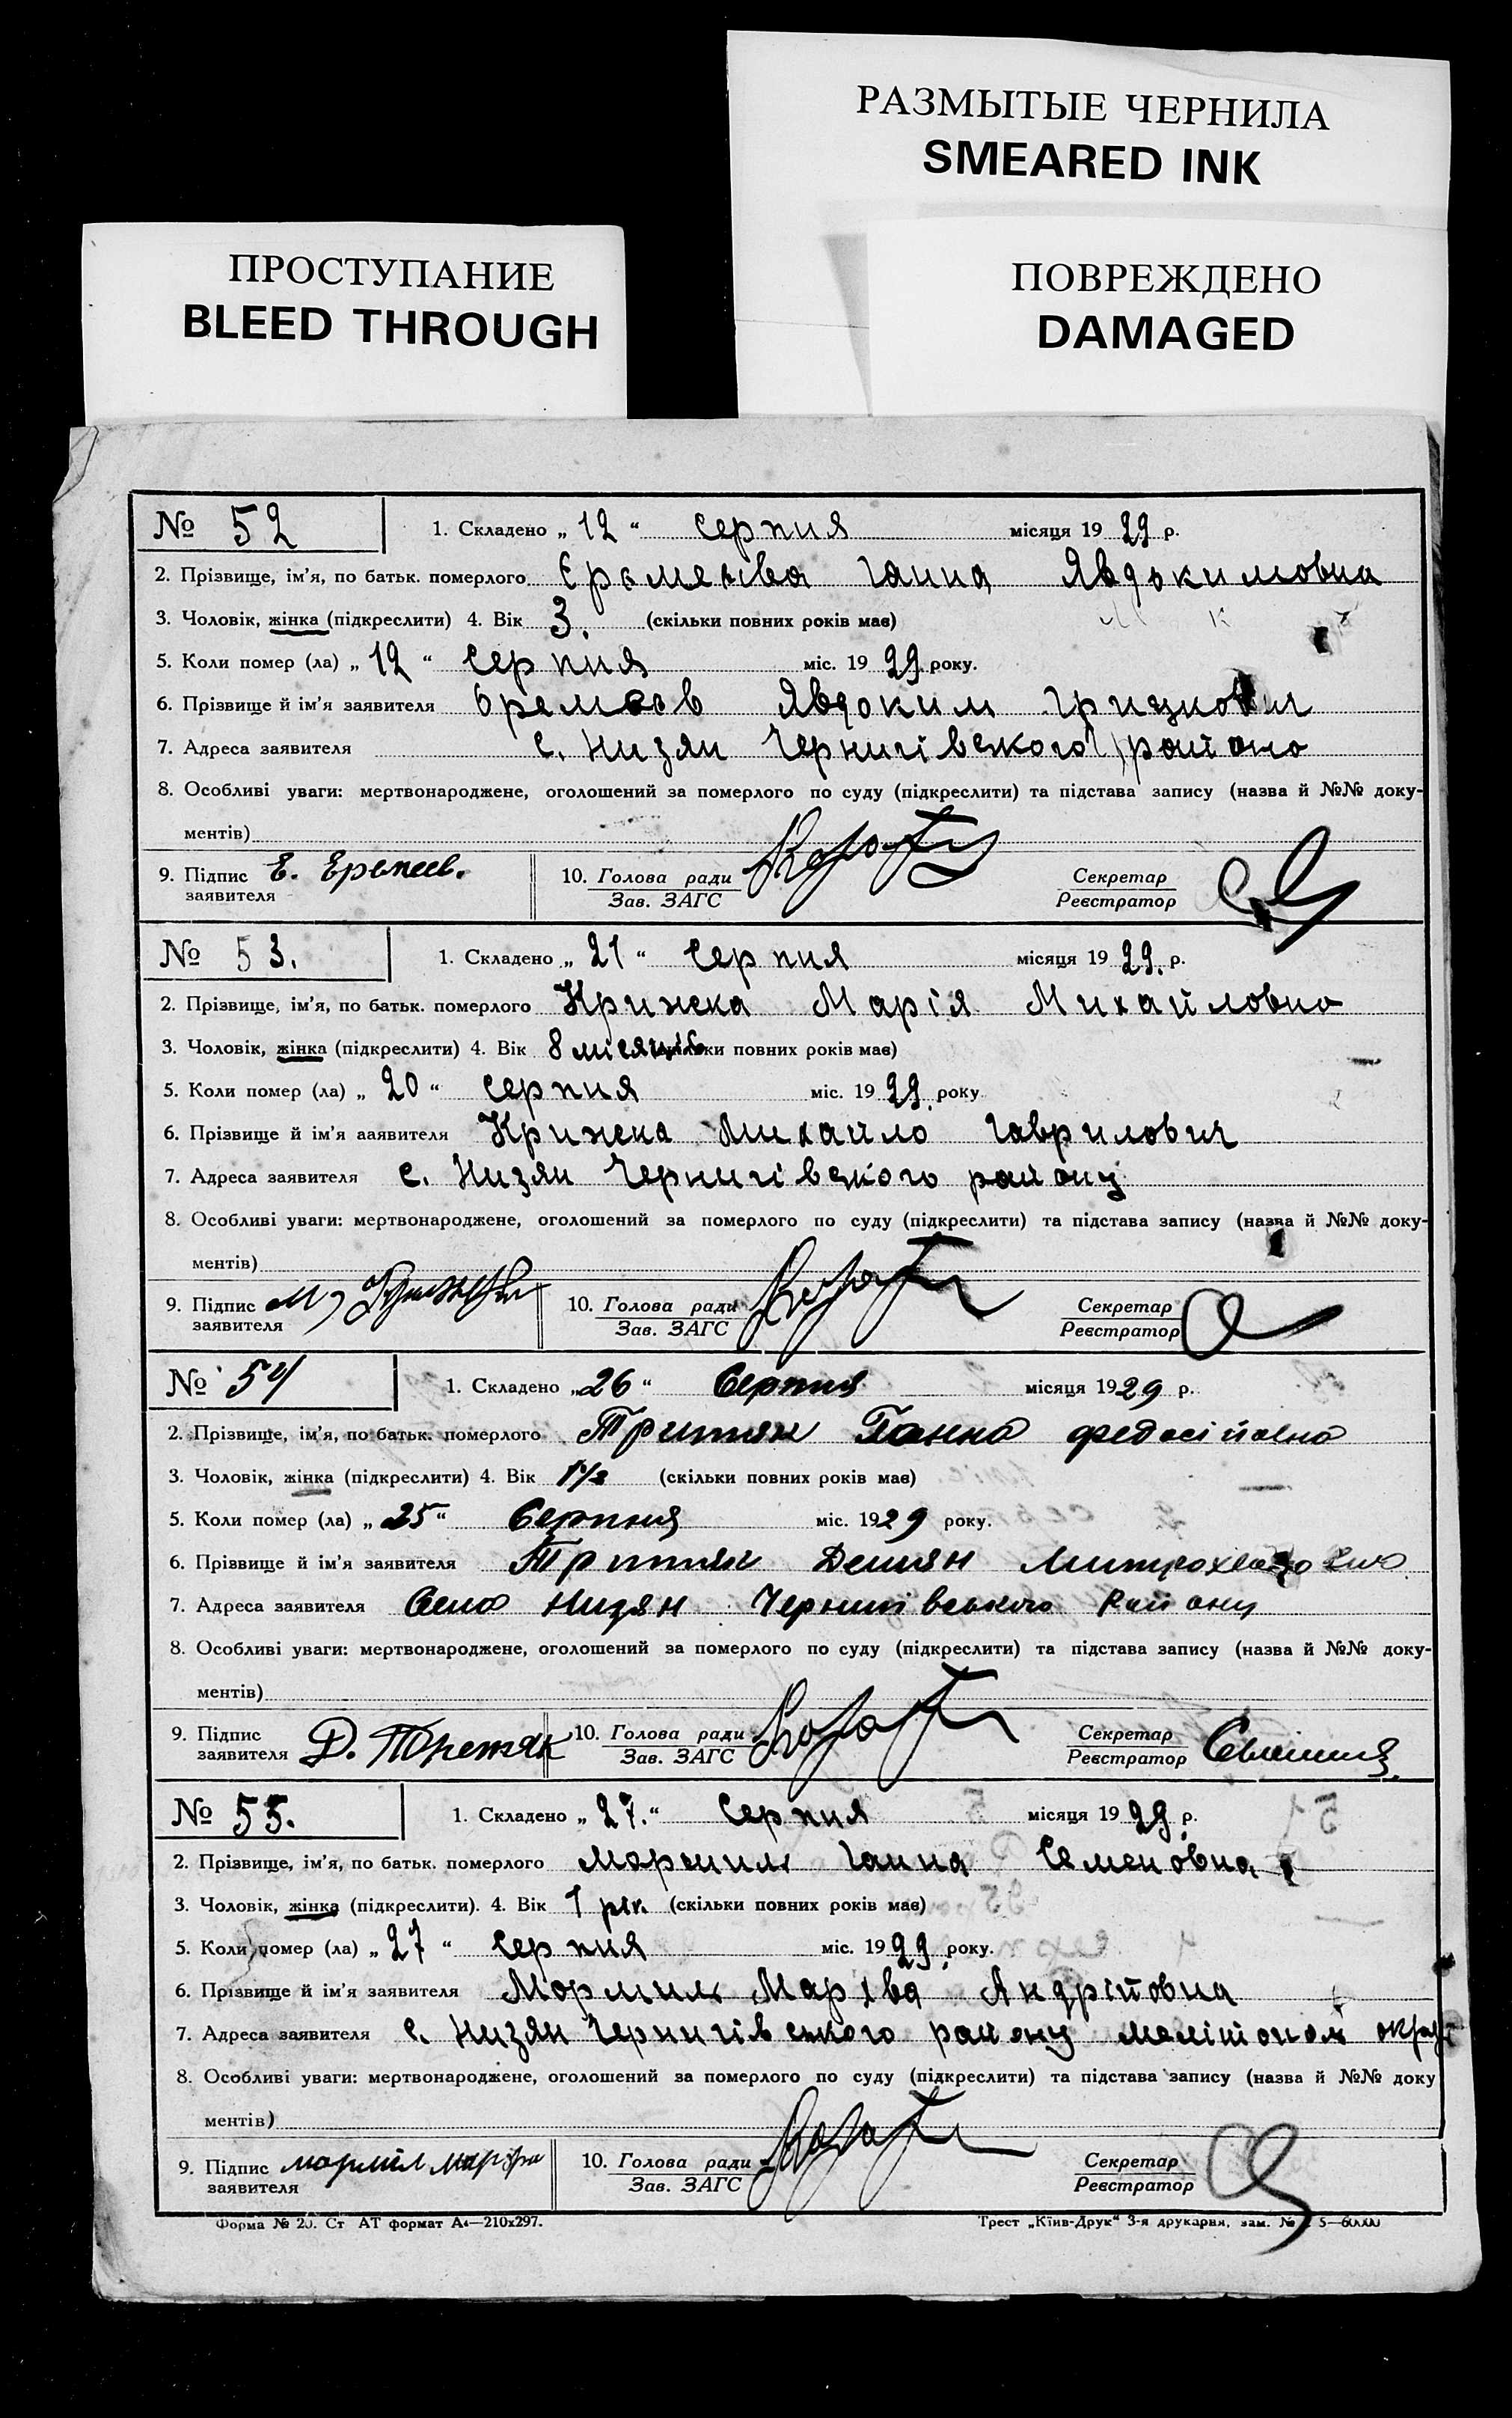 РАЗМЫТЫЕ ЧЕРНИЛА
SMEARED INK
ПРОСТУПАНИЕ
BLEED THROUGH
ПОВРЕЖДЕНО
DAMAGED
№ 52 1. Складено „ 12 “ серпня місяця 19 29 р.
2. Прізвище, ім'я, по батьк. померлого Ганна Явдокимовна
3. Чоловік, жінка (підкреслити) 4. Вік 3. (скільки повних років має)
5. Коли помер (ла) „ 12 “ серпня міс. 19 29. року.
6. Прізвище й ім'я заявителя Явдоким
7. Адреса заявителя с. Низян Чернигівського
8. Особливі уваги: мертвонароджене, оголошений за померлого по суду (підкреслити) та підстава запису (назва й №№ доку-
ментів)
9. Підпис Е. 10. Голова ради Секретар
заявителя Зав. ЗАГС Реєстратор
№ 53. 1. Складено „ 21 “ серпня місяця 19 29. р.
2. Прізвище, ім'я, по батьк. померлого Крижска Марія Михайловна
3. Чоловік, жінка (підкреслити) 4. Вік 8 місяців повних років має)
5. Коли помер (ла) „ 20 “ серпня міс. 19 29. року
6. Прізвище й ім'я заявителя Михайло Гаврилович
7. Адреса заявителя с. Низян Чернигівського району
8. Особливі уваги: мертвонароджене, оголошений за померлого по суду (підкреслити) та підстава запису (назва й №№ доку-
ментів)
9. Підпис М. 10. Голова ради Секретар
заявителя Зав. ЗАГС Реєстратор
№ 54 1. Складено „ 26 “ Серпня місяця 19 29 р.
2. Прізвище, ім'я, по батьк. померлого Ганна
3. Чоловік, жінка (підкреслити) 4. Вік 1 1/2 (скільки повних років має)
5. Коли помер (ла) „ 25 “ Серпня міс. 19 29 року.
6. Прізвище й ім'я заявителя Демян
7. Адреса заявителя Село Низян Чернигівського Району
8. Особливі уваги: мертвонароджене, оголошений за померлого по суду (підкреслити) та підстава запису (назва й №№ доку-
ментів)
9. Підпис Д. Третяк 10. Голова ради Секретар
заявителя Зав. ЗАГС Реєстратор
№ 55. 1. Складено „ 27. “ серпня місяця 19 29. р.
2. Прізвище, ім'я, по батьк. померлого Мормиль Ганна Семеновна
3. Чоловік, жінка (підкреслити). 4. Вік 1 рік. (скільки повних років має)
5. Коли помер (ла) „ 27 “ серпня міс. 19 29. року.
6. Прізвище й ім'я заявителя Мормиль Андрійовна
7. Адреса заявителя с. Низян Чернигівського району
8. Особливі уваги: мертвонароджене, оголошений за померлого по суду (підкреслити) та підстава запису (назва й №№ доку
ментів)
9. Підпис 10. Голова ради Секретар
заявителя Зав. ЗАГС Реєстратор
Форма № 20. Ст АТ формат А4—210x297. Трест „Київ-Друк“ 3-я друкарня, зам. №